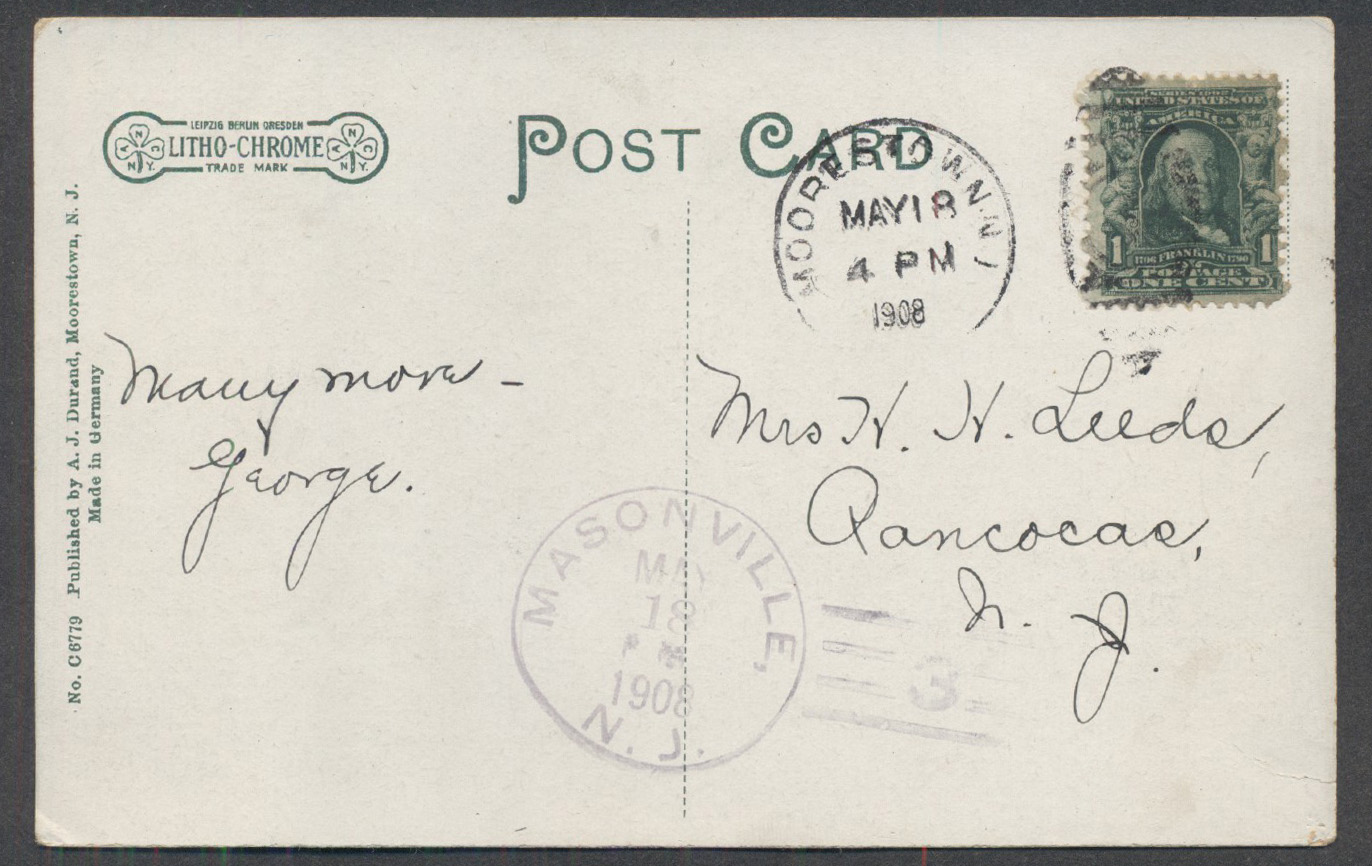 LEIPZIG BERLIN DRESDEN
LITHO-CHROME
TRADE MARK
A N C N.Y.
A N C N.Y.
POST CARD
MOORESTOWN, N.J.
MAY 18
4 PM
1908
SERIES 1902
UNITED STATES OF
AMERICA
1706 FRANKLIN 1790
1 1
POSTAGE
ONE CENT
No. C6779 Published by A. J. Durand, Moorestown, N. J.
Made in Germany
Many more -
George.
Mrs H. H. Leeds,
Rancocas,
N. J.
MASONVILLE,
MAY
18
1908
N. J.